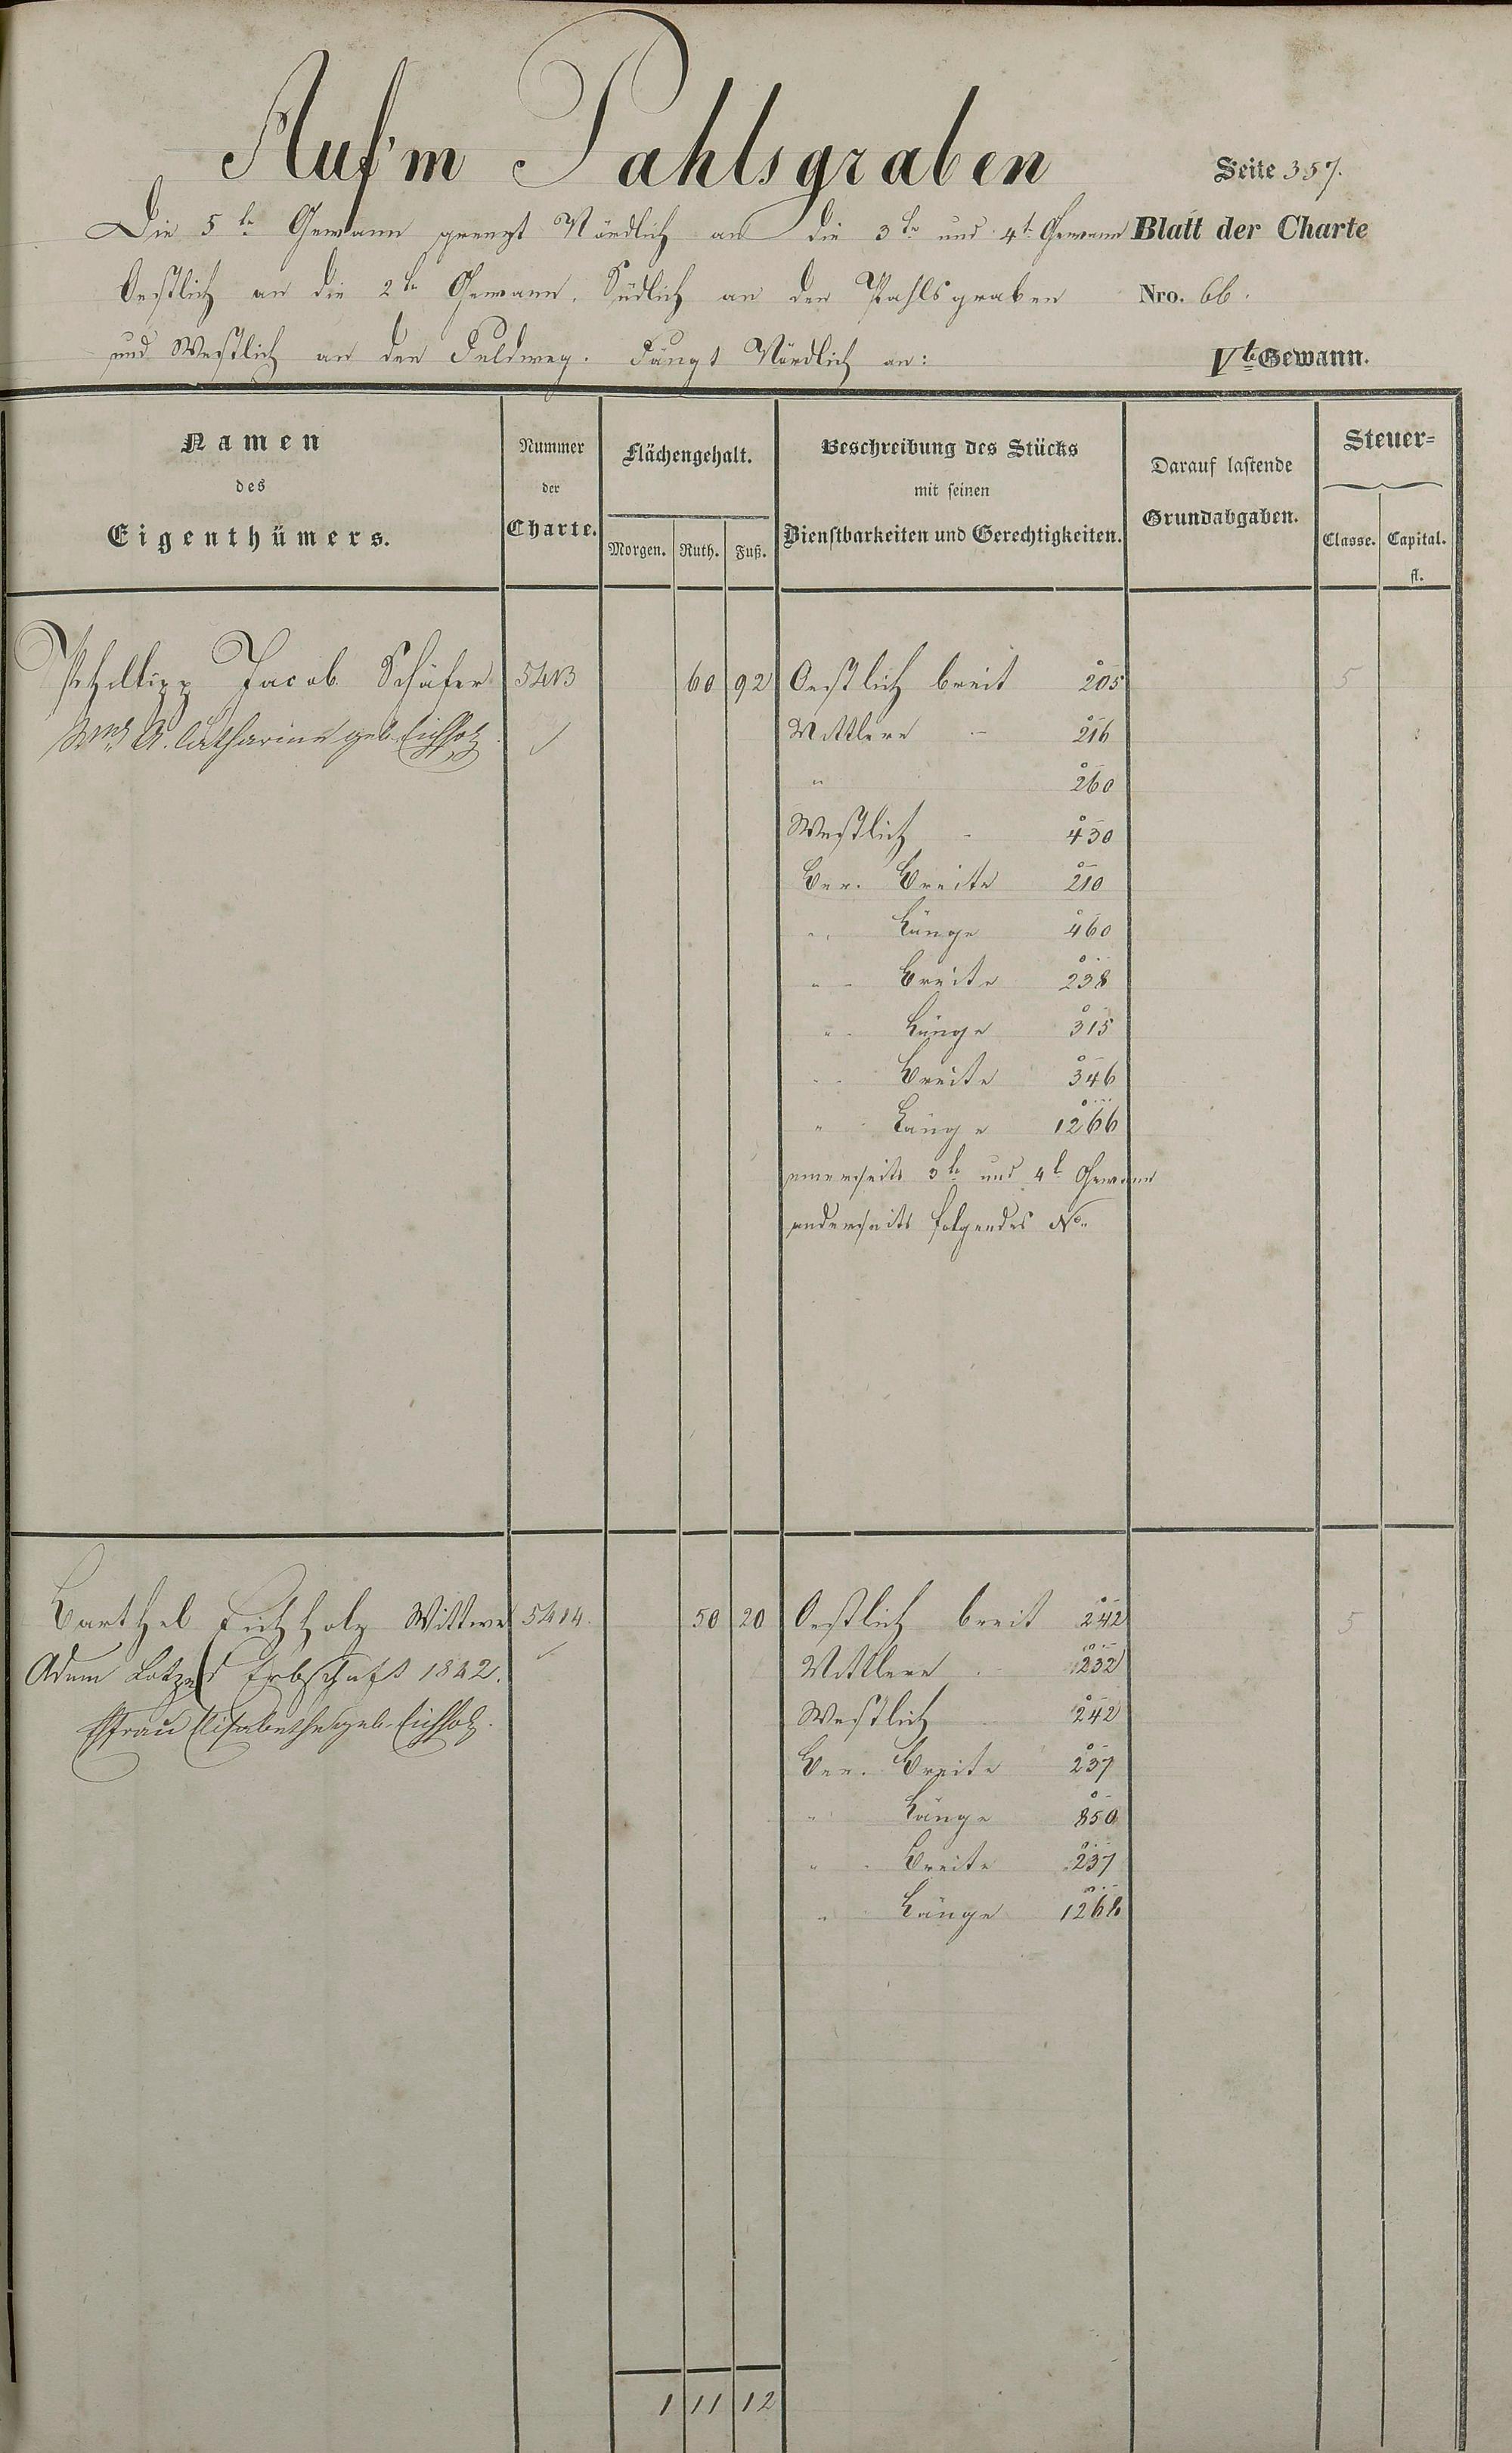 Auf'm Pahlsgraben
Seite 357.
Die 5te Gewann grenzt Nördlich an die 3te und 4te Gewann
Blatt der Charte
Oestlich an die 2te Gewann. Südlich an den Pfahlsgraben
Nro. 66.
und Westlich an den Feldweg. Fängt Nördlich an:
Vte Gewann.
Namen des Eigenthümers.
Nummer der Charte.
Flächengehalt.
Morgen. Ruth. Fuß.
Beschreibung des Stücks mit seinen Dienstbarkeiten und Gerechtigkeiten.
Darauf lastende Grundabgaben.
Steuer=
Classe. Capital. fl.
Philipp Jacob Schäfer 5413 60 92 Oestlich breit 205 5
A. Catharine geb. Eichholz Mittlere - 216
" 260
Westlich - 430
Ber. Breite 210
" Länge 460
" - Breite 238
" - Länge 315
" - Breite 346
" Länge 1266
einerseits 3te und 4te Gewann
anderseits folgendes No.
Barthel Eichholz Wittwe 5414. 50 20 Oestlich breit 242 5
Adam Lotz Erbschaft 1842. Mittlere - 232
Ehfrau Elisabethe geb. Eichholz. Westlich 242
Ber. Breite 237
" Länge 850
" - Breite 237
" Länge 1268
1 11 12